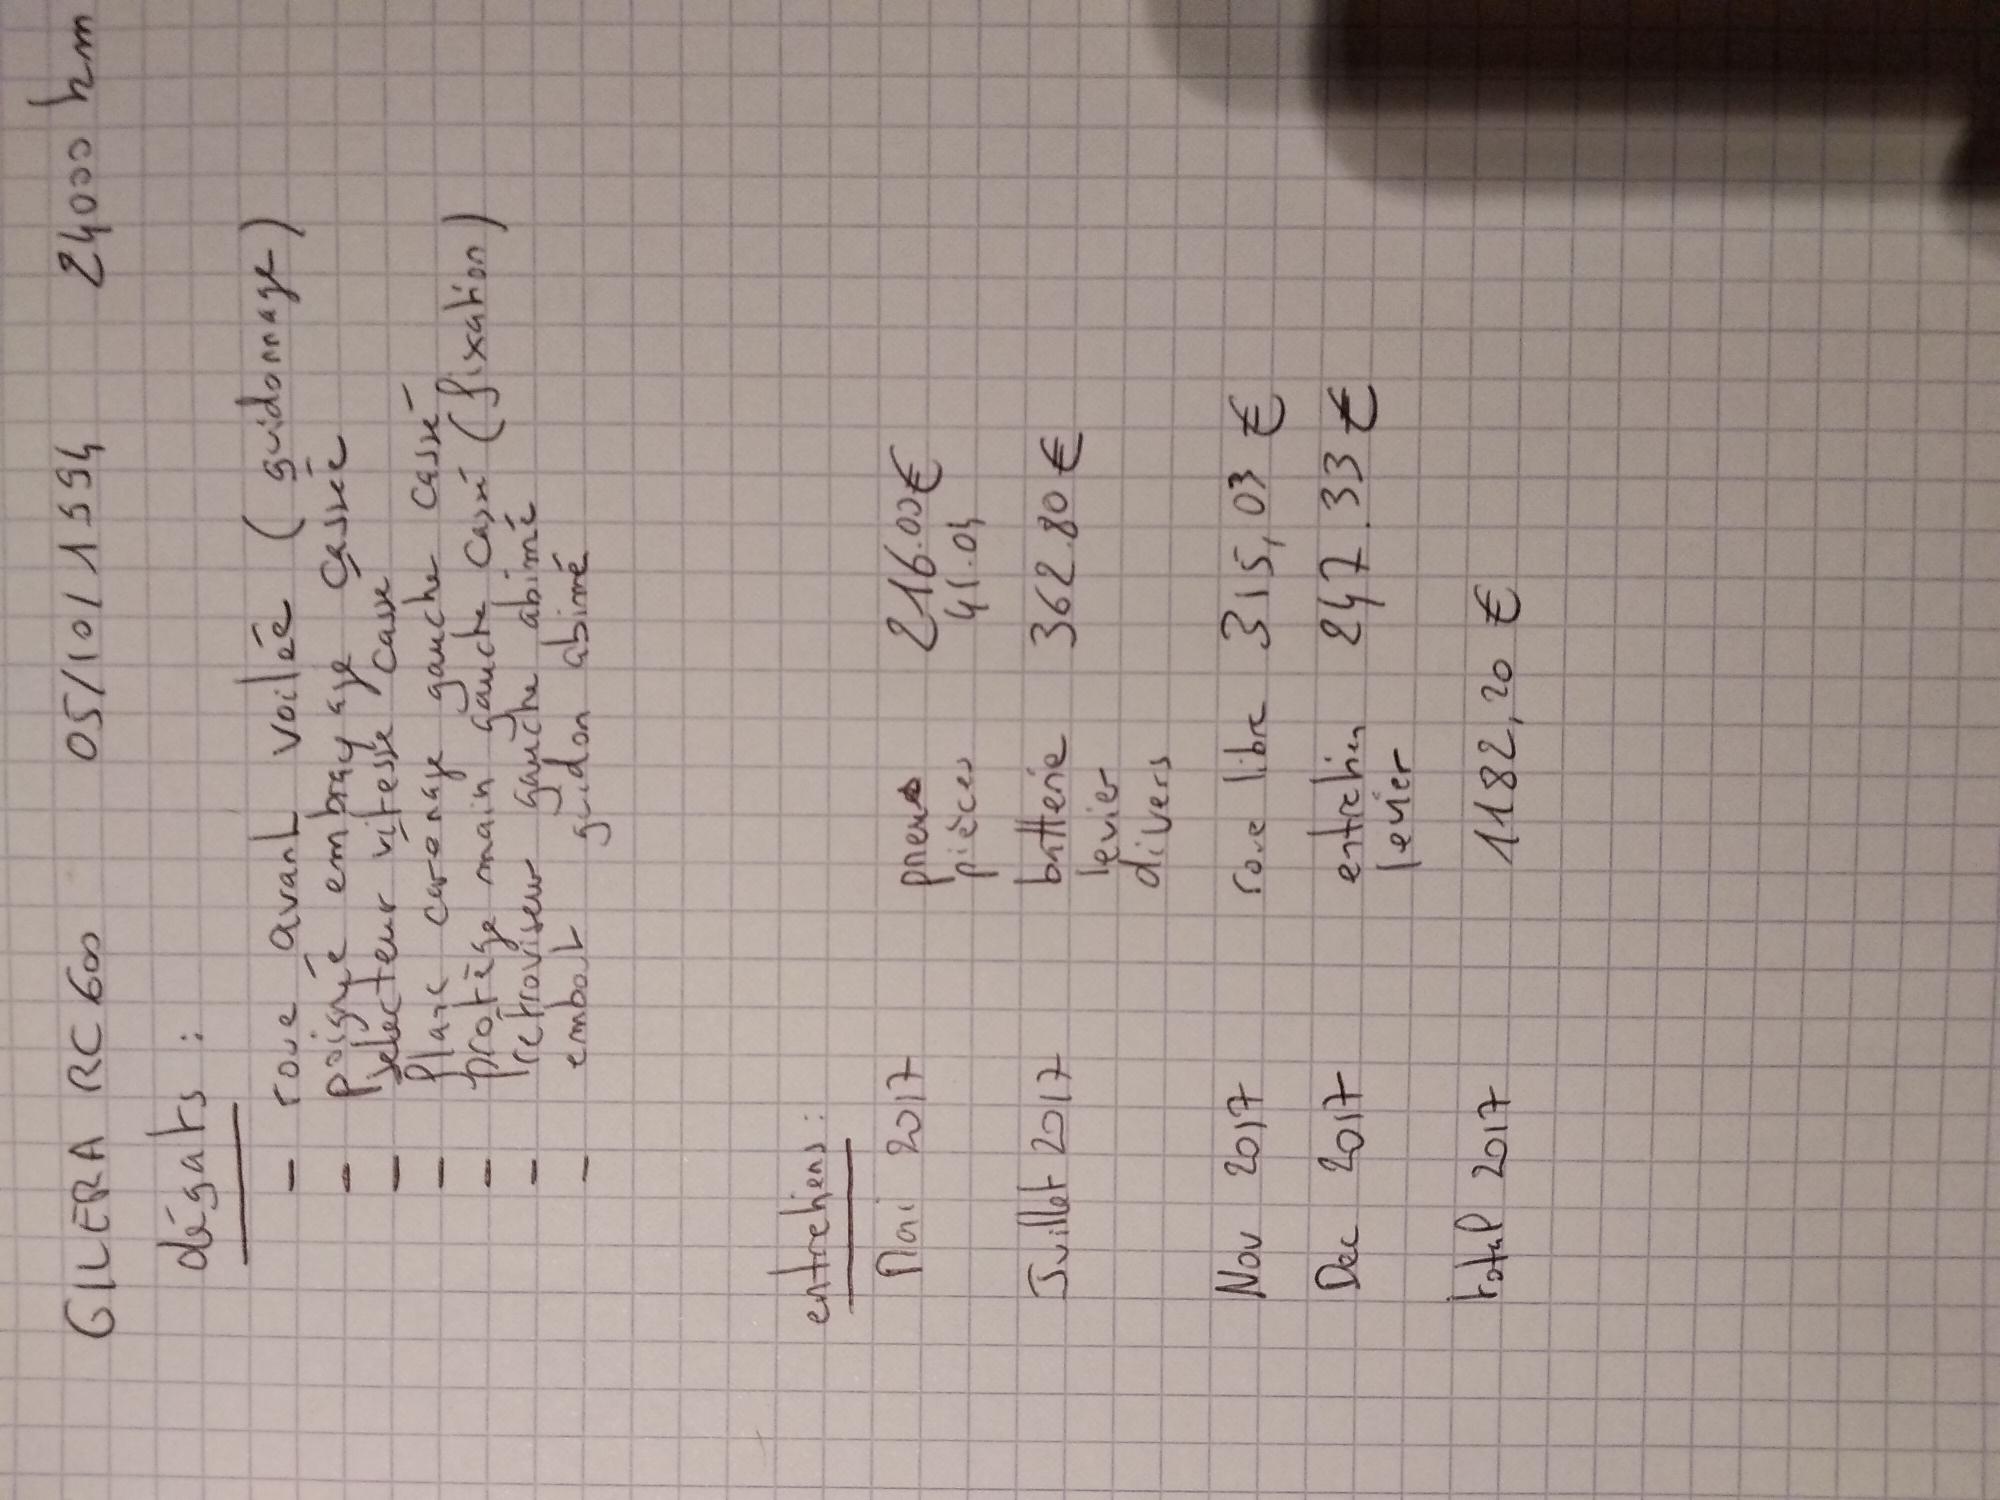 GILERA RC 600 05/10/1994 24000 km
dégats :
- roue avant voilée ( guidonnage )
- poigné embrayage cassée
- selecteur vitesse casse
- flanc carenage gauche cassé
- protège main gauche cassé ( fixation )
- retroviseur gauche abimé
- embout guidon abimé
entretiens :
Mai 2017 pneus 216.00 €
pièces 41.04
Juillet 2017 batterie 362.80 €
levier
divers
Nov 2017 roue libre 315,03 €
Dec 2017 entretien 247.33 €
levier
total 2017 1182,20 €